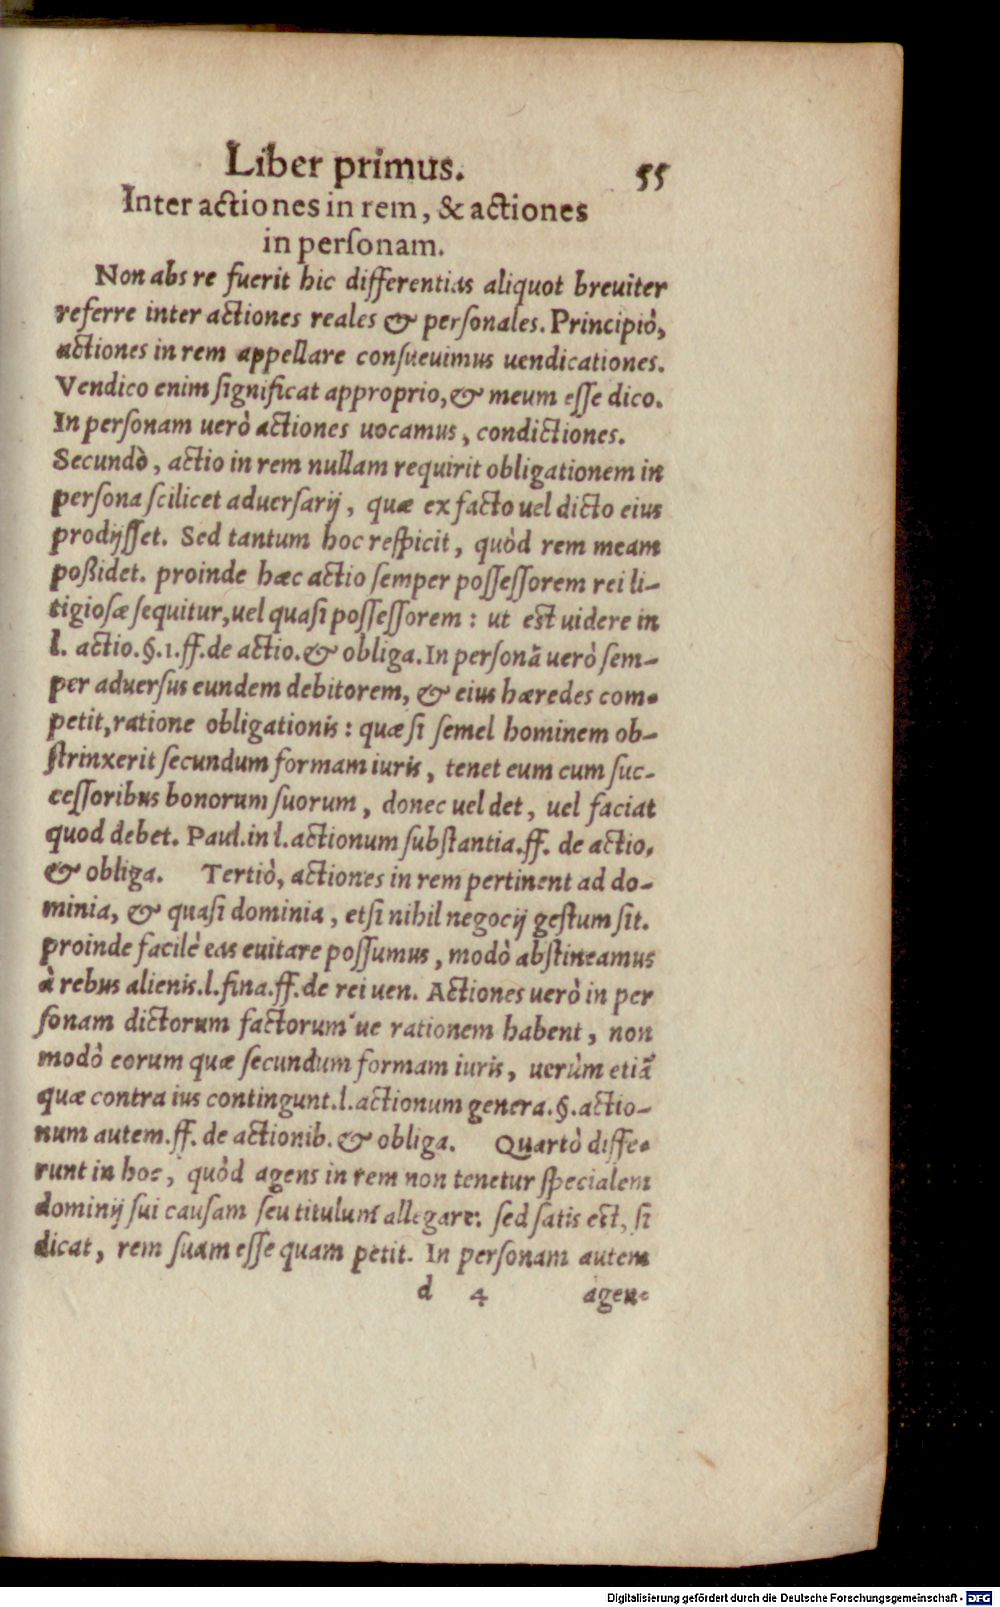 Liber primus. 55
Inter actiones in rem, & actiones
in perſonam.
Non abs re fuerit hic differentias aliquot breuiter
referre inter actiones reales & perſonales. Principiò,
actiones in rem appellare conſueuimus uendicationes.
Vendico enim ſignificat approprio, & meum eſſe dico.
In perſonam uerò actiones uocamus, condictiones.
Secundò, actio in rem nullam requirit obligationem in
perſona ſcilicet aduerſarij, quæ ex facto uel dicto eius
prodijſſet. Sed tantum hoc reſpicit, quòd rem meam
poßidet. proinde hæc actio ſemper poſſeſſorem rei li-
tigioſæ ſequitur, uel quaſi poſſeſſorem: ut est uidere in
l. actio. §. 1. ff. de actio. & obliga. In perſonã uerò ſem-
per aduerſus eundem debitorem, & eius hæredes com-
petit, ratione obligationis: quæ ſi ſemel hominem ob-
ſtrinxerit ſecundum formam iuris, tenet eum cum ſuc-
ceſſoribus bonorum ſuorum, donec uel det, uel faciat
quod debet. Paul. in l. actionum ſubſtantia. ff. de actio.
& obliga. Tertiò, actiones in rem pertinent ad do-
minia, & quaſi dominia, etſi nihil negocij geſtum ſit.
proinde facilè eas euitare poſſumus, modò abſtineamus
à rebus alienis. l. fina. ff. de rei uen. Actiones uerò in per
ſonam dictorum factorum'ue rationem habent, non
modò eorum quæ ſecundum formam iuris, uerùm etiã
quæ contra ius contingunt. l. actionum genera. §. actio-
num autem. ff. de actionib. & obliga. Quartò diffe-
runt in hoc, quòd agens in rem non tenetur ſpecialem
dominij ſui cauſam ſeu titulum allegare: ſed ſatis est, ſi
dicat, rem ſuam eſſe quam petit. In perſonam autem
d 4 agen-
Digitalisierung gefördert durch die Deutsche Forschungsgemeinschaft - DFG